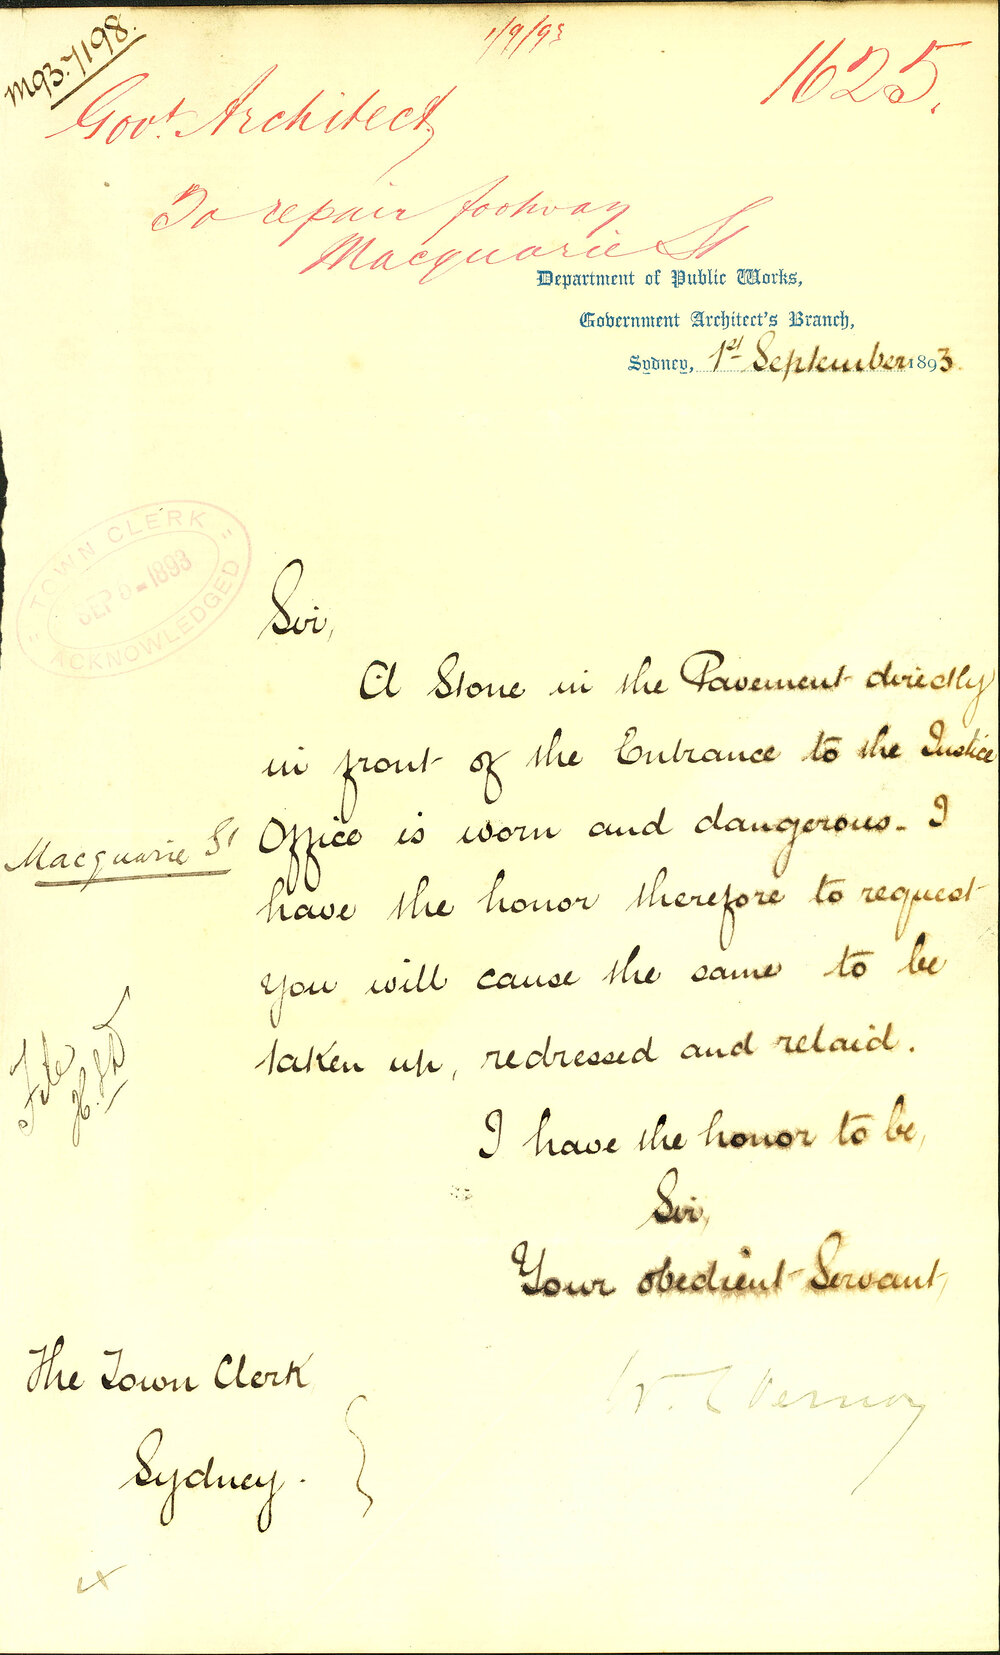 M93.7198.
1/9/93
1625.
Govt. Architect,
To repair footway
Macquarie St
Department of Public Works,
Government Architect's Branch,
Sydney, 1st September 1893.
TOWN CLERK
SEP 9-1893
ACKNOWLEDGED
Sir,
A Stone in the Pavement directly
in front of the Entrance to the Justice
Macquarie St
Office is worn and dangerous. I
have the honor therefore to request
you will cause the same to be
taken up, redressed and relaid.
File
I have the honor to be,
Sir,
Your obedient Servant,
W. L Vernon
The Town Clerk
Sydney.